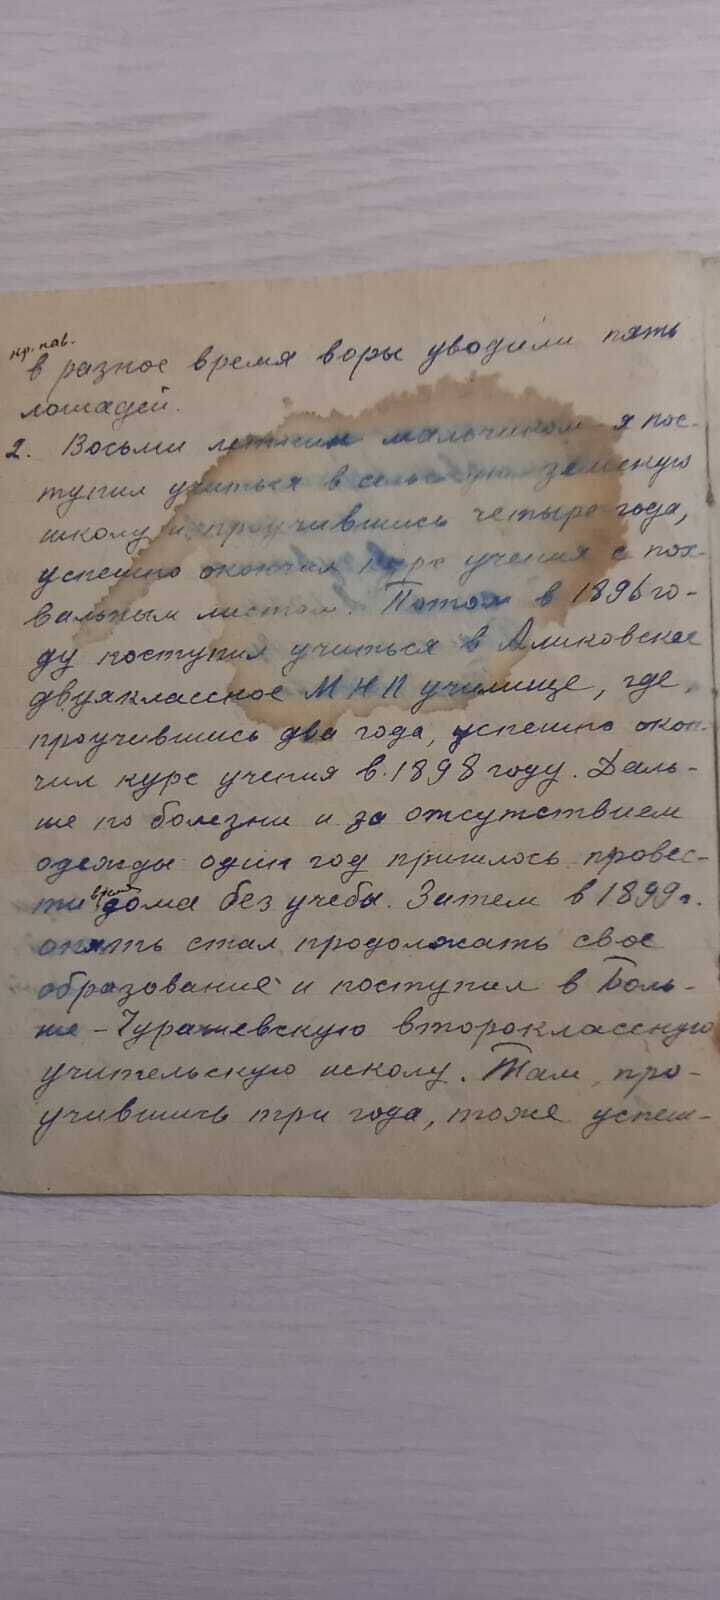 кр. пав.
в разное время воры уводили пять
лошадей.
2. Восьми летним мальчиком я пос-
тупил учиться в сельскую земскую
школу и, проучившись четыре года,
успешно окончил курс учения с пох-
вальным листом. Потом в 1896 го-
ду поступил учиться в Аликовское
двухклассное МНП училище, где,
проучившись два года, успешно окон-
чил курс учения в 1898 году. Даль-
ше по болезни и за отсутствием
одежды один год пришлось провес-
ти время дома без учебы. Затем в 1899 г.
опять стал продолжать свое
образование и поступил в Боль-
ше-Чурашевскую второклассную
учительскую школу. Там, про-
учившись три года, тоже успеш-